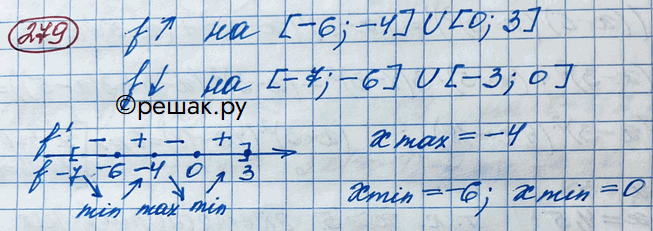 279 f↑ на [-6; -4] ∪ [0; 3]
f↓ на [-7; -6] ∪ [-3; 0]
©решак.ру
f' - + - +
f -7 -6 -4 0 3
min max min
xmax = -4
xmin = -6; xmin = 0